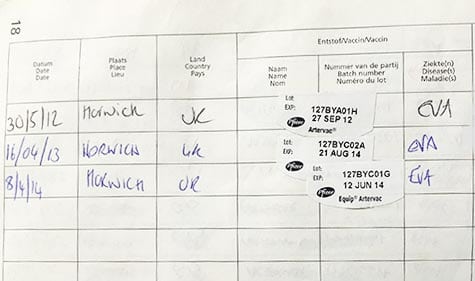 18
Entstof/Vaccin/Vaccin
Datum Plaats Land Naam Nummer van de partij Ziekte(n)
Date Place Country Name Batch number Disease(s)
Date Lieu Pays Nom Numéro du lot Maladie(s)
30/5/12 Horwich UK Lot: 127BYA01H EVA
EXP: 27 SEP 12
Pfizer Artervac®
16/04/13 HORWICH UK Lot: 127BYC02A EVA
EXP: 21 AUG 14
Pfizer
8/4/14 HORWICH UK Lot: 127BYC01G EVA
EXP: 12 JUN 14
Pfizer Equip® Artervac